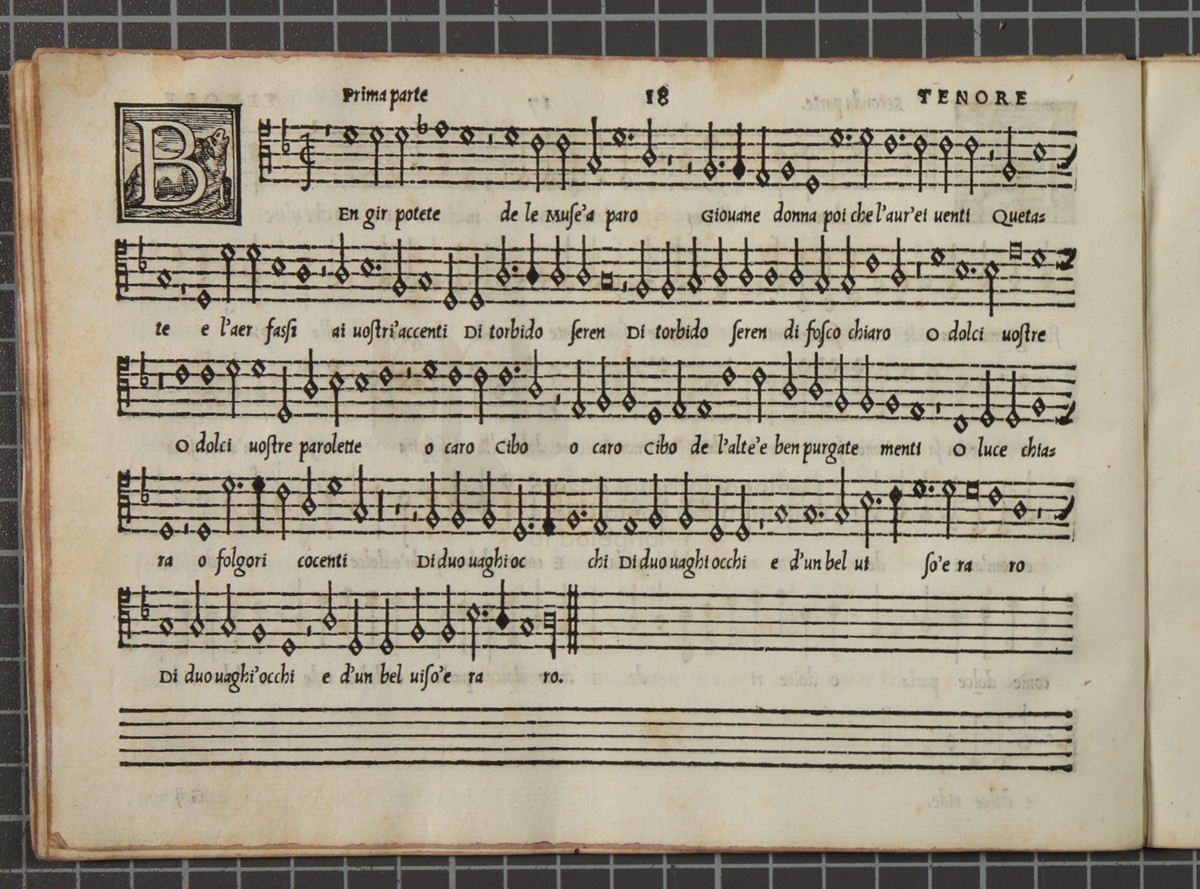 Prima parte 18 TENORE
BEn gir potete de le Muse'a paro Giouane donna poi che l'aur'ei uenti Queta=
te e l'aer fassi ai uostri'accenti Di torbido seren Di torbido seren di fosco chiaro O dolci uostre
O dolci uostre parolette o caro Cibo o caro Cibo de l'alte'e ben purgate menti O luce chia=
ra o folgori cocenti Di duo uaghi oc chi Di duo uaghi occhi e d'un bel ui so'e ra ro
Di duo uaghi'occhi e d'un bel uiso'e ra ro.